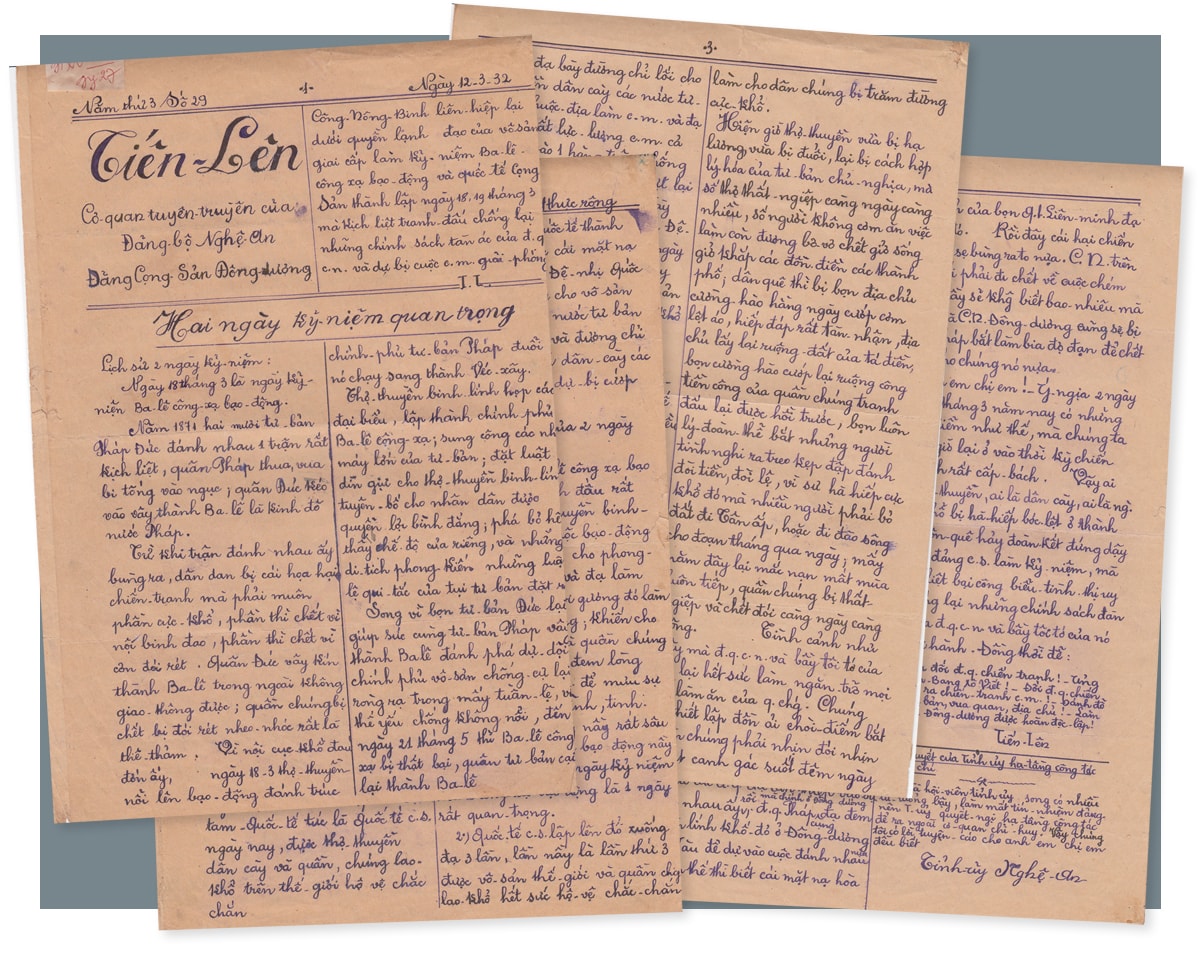 Năm thứ 3 Số 29
-1-
Ngày 12-3-32
Tiến-Lên
Cơ-quan tuyên-truyền của
Đảng-bộ Nghệ-An
Đảng Cộng-Sản Đông-Dương
Công-Nông-Binh liên-hiệp lại
dưới quyền lãnh đạo của vô sản
giai cấp làm kỷ-niệm Ba-lê-
công xạ bạo-động và quốc tế Cộng
Sản thành lập ngày 18, 19 tháng 3
mà kịch liệt tranh-đấu chống lại
những chính sách tàn ác của đ.q
c.n. và dự bị cuộc c.m. giải-phóng
T.L.
Hai ngày kỷ-niệm quan trọng
Lịch sử 2 ngày kỷ-niệm:
Ngày 18 tháng 3 là ngày kỷ-
niệm Ba-lê công-xạ bạo-động.
Năm 1871 hai mươi tư-bản
Pháp Đức đánh nhau 1 trận rất
kịch liệt, quân Pháp thua, vua
bị tống vào ngục; quân Đức kéo
vào vây thành Ba-lê là kinh đô
nước Pháp.
Từ khi trận đánh nhau ấy
bùng ra, dân đan bị cái họa hại
chiến-tranh mà phải muôn
phần cực-khổ, phần thì chết vì
nỗi binh đao, phần thì chết vì
cơn đói rét. Quân Đức vây kín
thành Ba-lê trong ngoài không
giao-thông được; quần chúng bị
chết bị đói rét nheo-nhóc rất là
thê thảm. Vì nỗi cục khổ đau
đớn ấy, ngày 18-3 thợ-thuyền
nổi lên bạo-động đánh trúc
chính-phủ tư-bản Pháp đuổi
nó chạy sang thành Véc-xây.
Thợ-thuyền binh lính họp các
đại biểu, lập thành chính phủ
Ba-lê cộng-xạ; sung công các nhà
máy lớn của tư-bản; đặt luật
gìn giữ cho thợ-thuyền binh-lính
tuyên-bố cho nhân dân được
quyền lợi bình đẳng; phá bỏ hết
thảy chế độ của riêng, và những
di-tích phong-kiến những luật
lệ qui-tắc của tụi tư bản đặt ra
Song vì bọn tư-bản Đức lại
giúp sức cùng tư-bản Pháp vào
thành Ba-lê đánh phá dữ-dội
chính phủ vô-sản chống-cự lại
ròng rã trong mấy tuần-lễ, vì
thế yếu chống không nổi, đến
ngày 21 tháng 5 thì Ba-lê công
xạ bị thất bại, quân tư-bản cai
lại thành Ba-lê
-3-
đạ bày đường chỉ lối cho
dân cày các nước tư-
thuộc-địa làm c.m. và đạ
lực-lượng c.m. cả
làm cho dân chúng bị trăm đường
cực-khổ.
Hiện giờ thợ-thuyền vừa bị hạ
lương, vừa bị đuổi, lại bị cách hợp
lý-hóa của tư-bản chủ-nghĩa, mà
số thợ thất-ngiệp càng ngày càng
nhiều, số người không cơm ăn việc
làm còn đương bơ vơ chết giở sống
giở khắp các đồn điền các thành
phố; dân quê thì bị bọn địa chủ
cường-hào hàng ngày cướp cơm
lột áo, hiếp đáp rất tàn-nhận, địa
chủ lấy lại ruộng-đất của tá điền,
bọn cường hào cướp lại ruộng công
tiền công của quần chúng tranh
đấu lại được hồi trước, bọn luôn
lý-đoàn-thề bắt những người
tình nghi ra treo kẹp đập đánh
đòi tiền, đòi lệ, vì sự hà hiếp cực
khổ đó mà nhiều người phải bỏ
đất đi Tân ấp, hoặc đi đào sông
cho đoạn tháng qua ngày; mấy
năm đây lại mắc nạn mất mùa
luôn tiếp, quần chúng bị thất-
ngiệp và chết đói càng ngày càng
Tình cảnh như
mà đ.q.c.n. và bầy tôi tớ của
lại hết sức làm ngăn-trở mọi
làm ăn của q.chg. Chúng
thiết lập đồn ải chòi-điếm bắt
chúng phải nhịn đói nhịn
canh gác suốt đêm ngày
thực rộng
quốc tế thành
cái mặt nạ
Đệ-nhị Quốc
cho vô sản
nước tư bản
và đương chủ
dân-cày các
dự-bị cướp
của 2 ngày
công xạ bạo
đầu rất
thuyền binh-
bạo-động
cho phong-
và đạ làm
gương đó làm
khiến cho
quần chúng
đem lòng
để mưu sự
này rất sâu
bạo động này
ngày kỷ niệm
động là 1 ngày
rất quan-trọng.
2·) Quốc tế c.s. lập lên đó xuống
đạ 3 lần, lần nầy là lần thứ 3
được vô-sản thế-giới và quần chg
lao-khổ hết sức hộ-vệ chắc-chắn
tam-Quốc-tế tức là Quốc tế c.s.
ngày nay, được thợ thuyền
dân cày và quần chúng lao-
khổ trên thế-giới hộ vệ chắc
chắn
của bọn q.t. Liên-minh đạ
Rồi đây cái hại chiến
sẹ bùng ra to nửa. C.N. trên
phải đi chết về cuộc chém
sẻ khộ biết bao-nhiêu mà
CN. Đông-dương cung sẻ bị
bắt làm bia đỡ đạn để chết
cho chúng nó nửa.
em chị em! – Ý-ngịa 2 ngày
tháng 3 năm nay có những
niệm như thế, mà chúng ta
lại ở vào thời kỳ chiến
rất cấp-bách. Vậy ai
thuyền, ai là dân cày, ai là ng.
bị hà-hiếp bóc-lột ở thành
quê hảy đoàn kết đứng dậy
đảng c.s. làm kỷ-niệm, mà
biểu-tình thị uy
lại những chính sách dàn
đ.q.c.n và bầy tôi tớ của nó
Đồng thời đề:
đối đ.q chiến tranh! – Ủng
Bang xô Viết! – Đối đ.q chiến-
ra chiến-tranh c.m! – Đánh đổ
bản, vua quan, địa chủ! – Làm
Đông-dương được hoàn độc-lập!
Tiến-Lên
quyết của Tỉnh ủy hạ-tầng công tác
hội-viên tỉnh ủy, song có nhiều
bậy, làm mất tín-nhiệm đảng
T. ủy quyết-ngị hạ tầng công tác
để ra ngoài cơ-quan chỉ-huy. Vậy chúng
tôi có lời tuyên-cáo cho anh em chị em
đều biết
Tỉnh-ủy Nghệ-An
nhau ấy; đ.q. Pháp đạ đem
lính khố-đỏ ở Đông-dương
dự vào cuộc đánh nhau
thế thì biết cái mặt nạ hòa